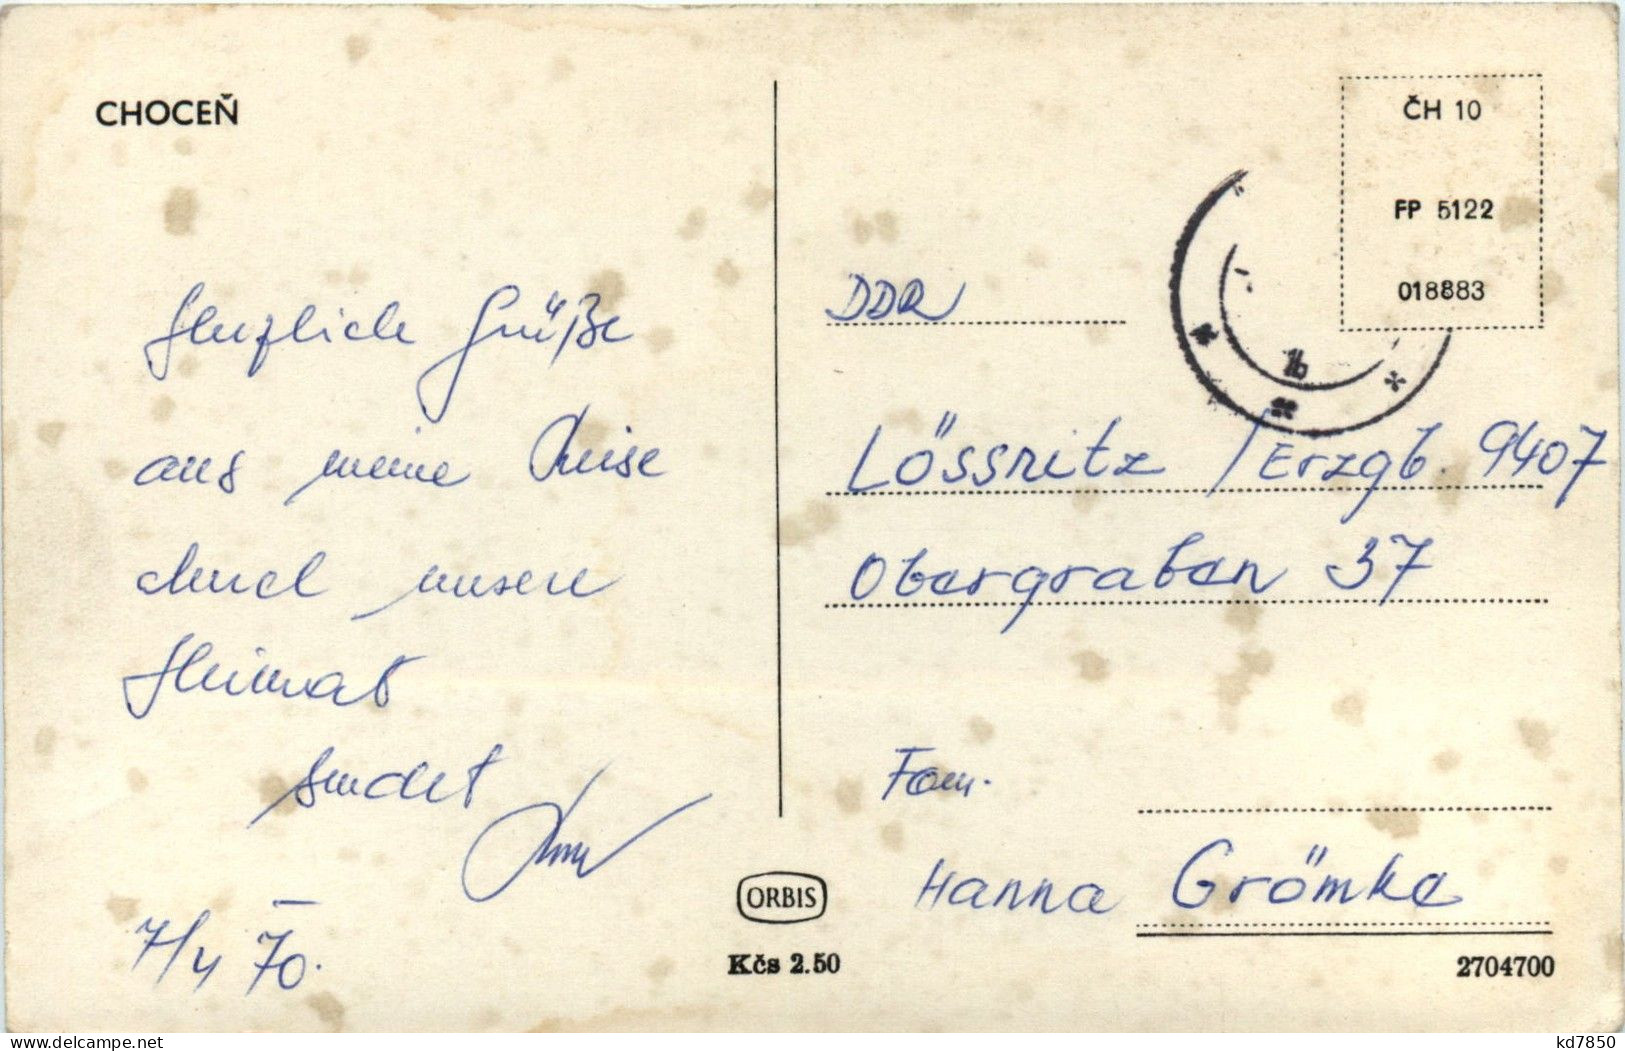 CHOCEŇ
Herzliche Grüße
aus meine Reise
durch unsere
Heimat
sendet
7/4 70.
ORBIS
Kčs 2.50
ČH 10
FP 5122
018883
1b
DDR
Lössnitz / Erzgb. 9407
Obergraben 37
Fam.
Hanna Grömke
2704700
delcampe.net
kd7850